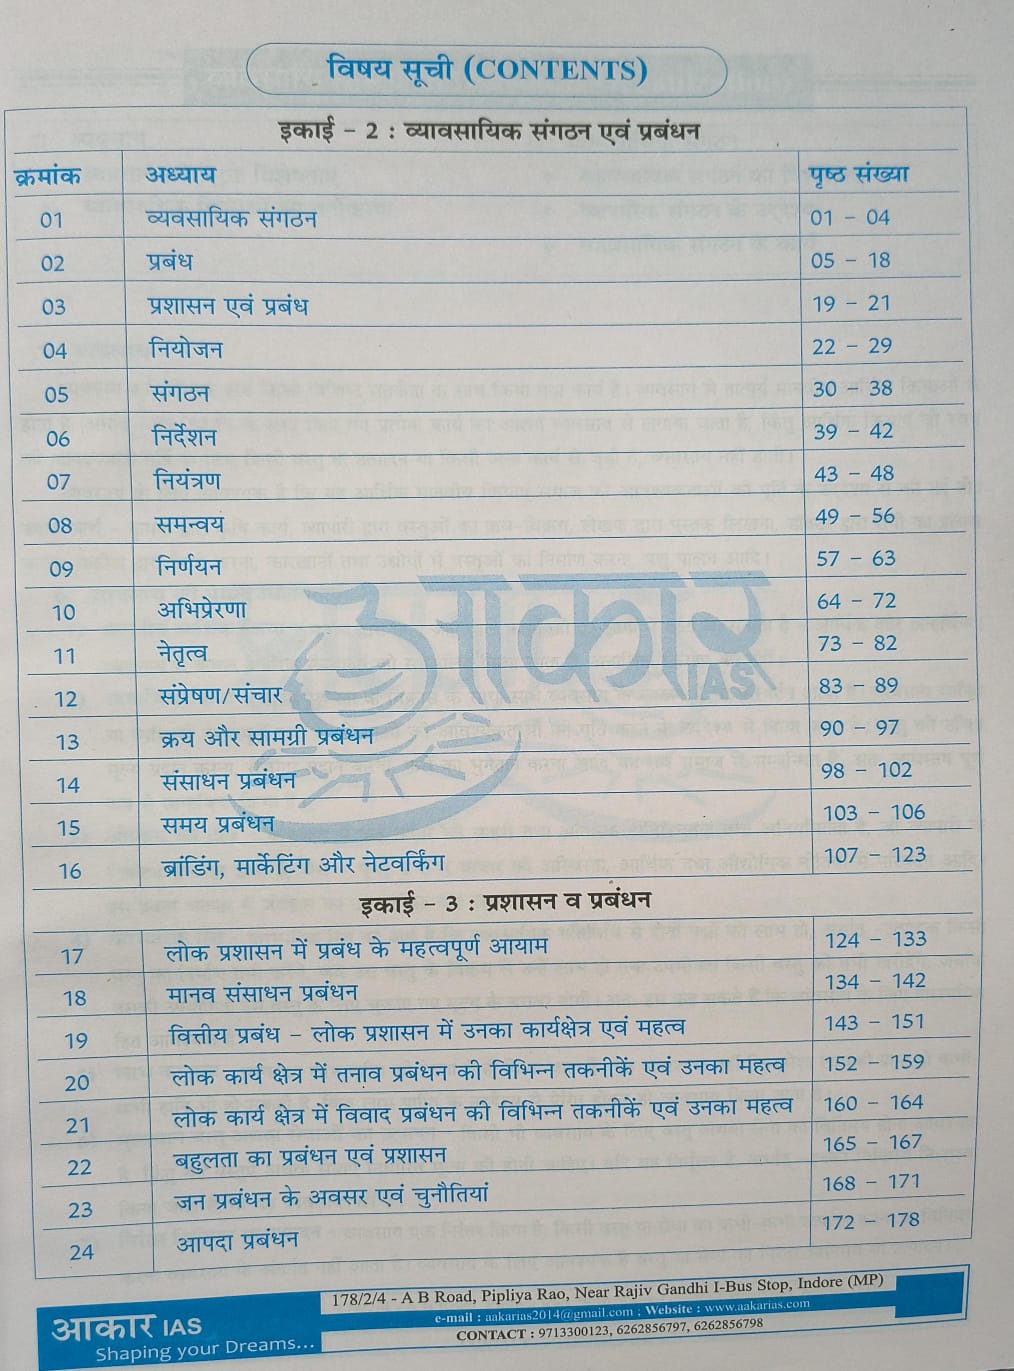 विषय सूची (CONTENTS)
इकाई - 2 : व्यावसायिक संगठन एवं प्रबंधन
क्रमांक अध्याय पृष्ठ संख्या
01 व्यवसायिक संगठन 01 - 04
02 प्रबंध 05 - 18
03 प्रशासन एवं प्रबंध 19 - 21
04 नियोजन 22 - 29
05 संगठन 30 - 38
06 निर्देशन 39 - 42
07 नियंत्रण 43 - 48
08 समन्वय 49 - 56
09 निर्णयन 57 - 63
10 अभिप्रेरणा 64 - 72
11 नेतृत्व 73 - 82
12 संप्रेषण/संचार 83 - 89
13 क्रय और सामग्री प्रबंधन 90 - 97
14 संसाधन प्रबंधन 98 - 102
15 समय प्रबंधन 103 - 106
16 ब्रांडिंग, मार्केटिंग और नेटवर्किंग 107 - 123
इकाई - 3 : प्रशासन व प्रबंधन
17 लोक प्रशासन में प्रबंध के महत्वपूर्ण आयाम 124 - 133
18 मानव संसाधन प्रबंधन 134 - 142
19 वित्तीय प्रबंध - लोक प्रशासन में उनका कार्यक्षेत्र एवं महत्व 143 - 151
20 लोक कार्य क्षेत्र में तनाव प्रबंधन की विभिन्न तकनीकें एवं उनका महत्व 152 - 159
21 लोक कार्य क्षेत्र में विवाद प्रबंधन की विभिन्न तकनीकें एवं उनका महत्व 160 - 164
22 बहुलता का प्रबंधन एवं प्रशासन 165 - 167
23 जन प्रबंधन के अवसर एवं चुनौतियां 168 - 171
24 आपदा प्रबंधन 172 - 178
आकार IAS
IAS
178/2/4 - A B Road, Pipliya Rao, Near Rajiv Gandhi I-Bus Stop, Indore (MP)
e-mail : aakarias2014@gmail.com ; Website : www.aakarias.com
CONTACT : 9713300123, 6262856797, 6262856798
आकार IAS
Shaping your Dreams...